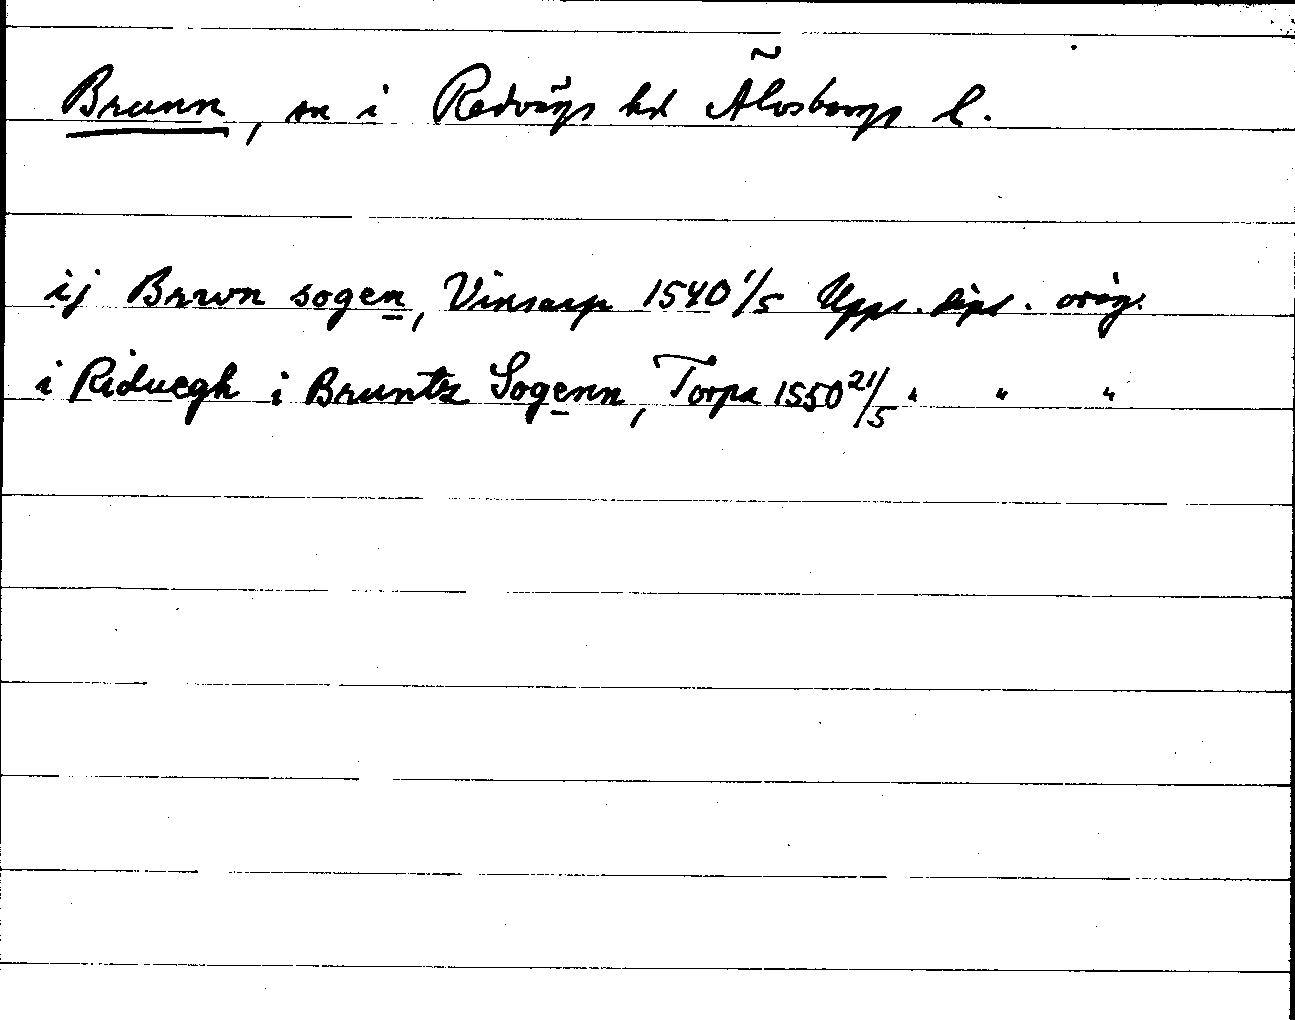 Brunn, sn i Redvägs hd Älvsborgs l.
ij Brwn sogen, Vinsarp 1540 1/5 Upps. dipl. orig.
i Riduegh i Bruntz Sogenn, Torpa 1550 21/5 " " "